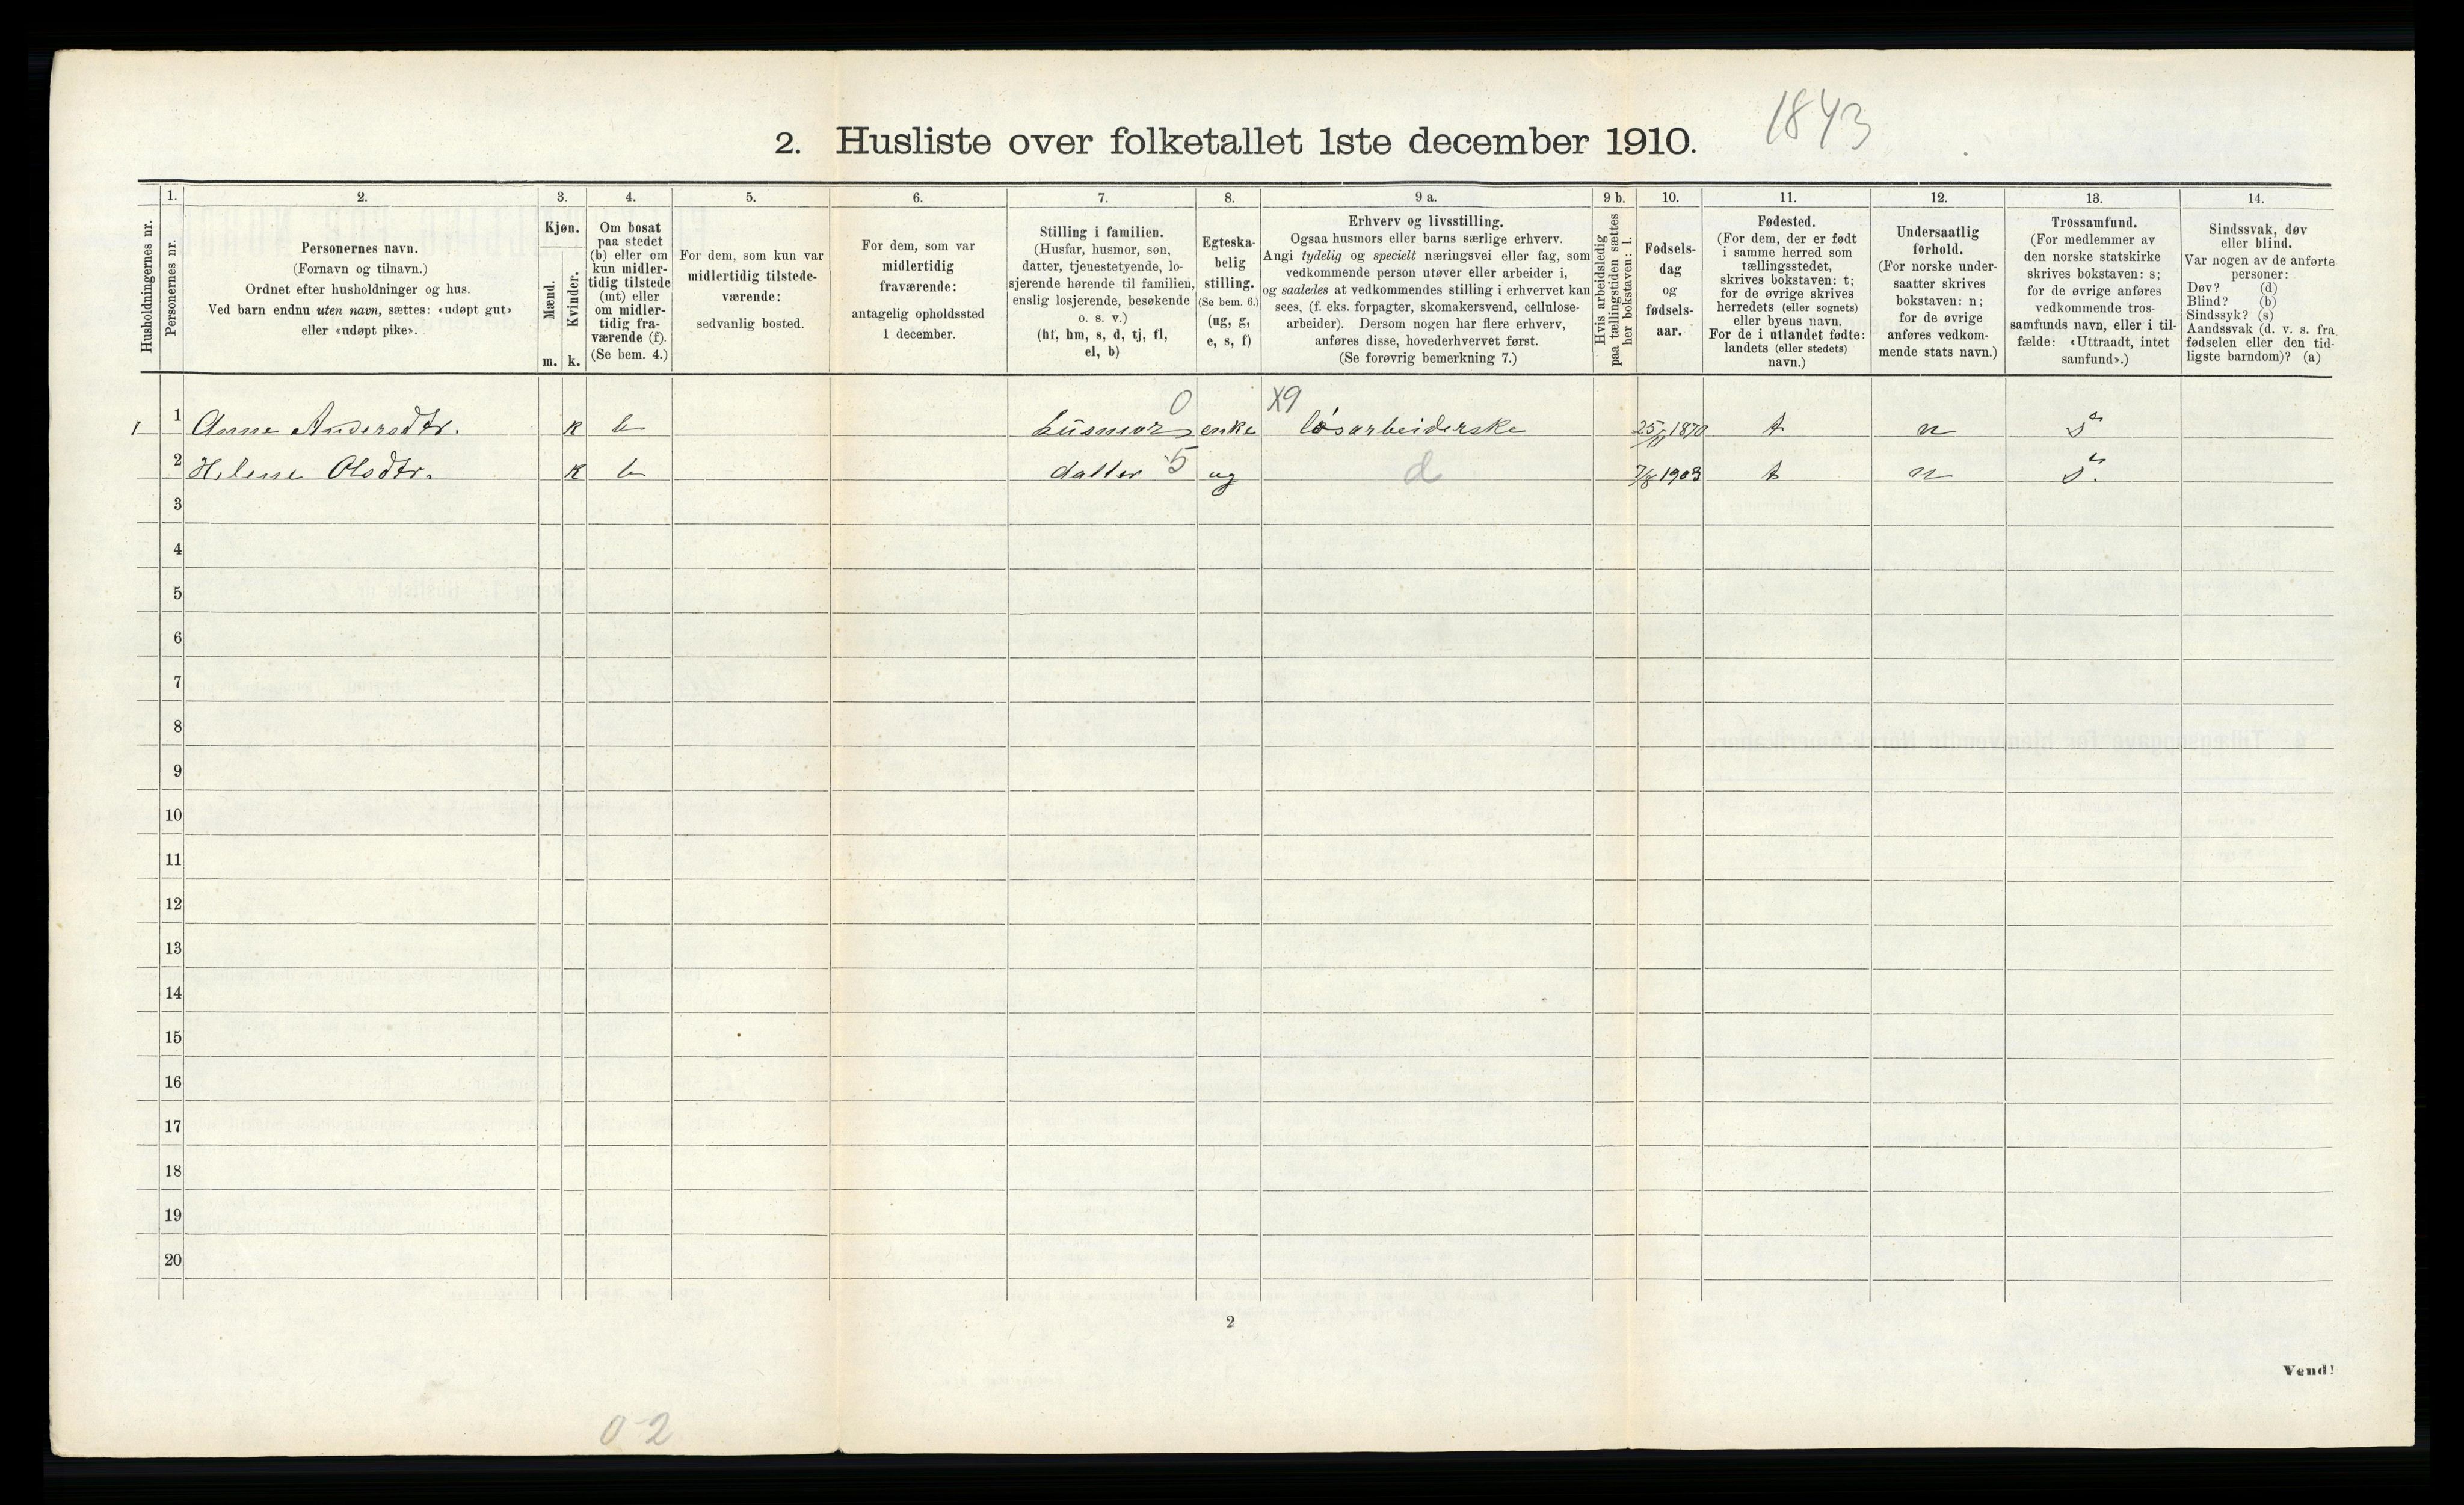 1843
2. Husliste over folketallet 1ste december 1910.
Husholdningernes nr.
1.
Personernes nr.
2.
Personernes navn.
(Fornavn og tilnavn.)
Ordnet efter husholdninger og hus.
Ved barn endnu uten navn, sættes: «udøpt gut»
eller «udøpt pike».
3.
Kjøn.
Mænd.
Kvinder.
m. k.
4.
Om bosat
paa stedet
(b) eller om
kun midler-
tidig tilstede
(mt) eller
om midler-
tidig fra-
værende (f).
(Se bem. 4.)
5.
For dem, som kun var
midlertidig tilstede-
værende:
sedvanlig bosted.
6.
For dem, som var
midlertidig
fraværende:
antagelig opholdssted
1 december.
7.
Stilling i familien.
(Husfar, husmor, søn,
datter, tjenestetyende, lo-
sjerende hørende til familien,
enslig losjerende, besøkende
o. s. v.)
(hf, hm, s, d, tj, fl,
el, b)
8.
Egteska-
belig
stilling.
(Se bem. 6.)
(ug, g,
e, s, f)
9 a.
Erhverv og livsstilling.
Ogsaa husmors eller barns særlige erhverv.
Angi tydelig og specielt næringsvei eller fag, som
vedkommende person utøver eller arbeider i,
og saaledes at vedkommendes stilling i erhvervet kan
sees, (f. eks. forpagter, skomakersvend, cellulose-
arbeider). Dersom nogen har flere erhverv,
anføres disse, hovederhvervet først.
(Se forøvrig bemerkning 7.)
9 b.
Hvis arbeidsledig
paa tællingstiden sættes
her bokstaven: l.
10.
Fødsels-
dag
og
fødsels-
aar.
11.
Fødested.
(For dem, der er født
i samme herred som
tællingsstedet,
skrives bokstaven: t;
for de øvrige skrives
herredets (eller sognets)
eller byens navn.
For de i utlandet fødte:
landets (eller stedets)
navn.)
12.
Undersaatlig
forhold.
(For norske under-
saatter skrives
bokstaven: n;
for de øvrige
anføres vedkom-
mende stats navn.)
13.
Trossamfund.
(For medlemmer av
den norske statskirke
skrives bokstaven: s;
for de øvrige anføres
vedkommende tros-
samfunds navn, eller i til-
fælde: «Uttraadt, intet
samfund».)
14.
Sindssvak, døv
eller blind.
Var nogen av de anførte
personer:
Døv? (d)
Blind? (b)
Sindssyk? (s)
Aandssvak (d. v. s. fra
fødselen eller den tid-
ligste barndom)? (a)
0 X9
1 1 Anne Andersdtr. k b husmor enke løsarbeiderske 25/11 1870 t n s
2 Helene Olsdtr. k b datter 5 ug d 7/8 1903 t n s.
3
4
5
6
7
8
9
10
11
12
13
14
15
16
17
18
19
20
2
Vend!
0-2